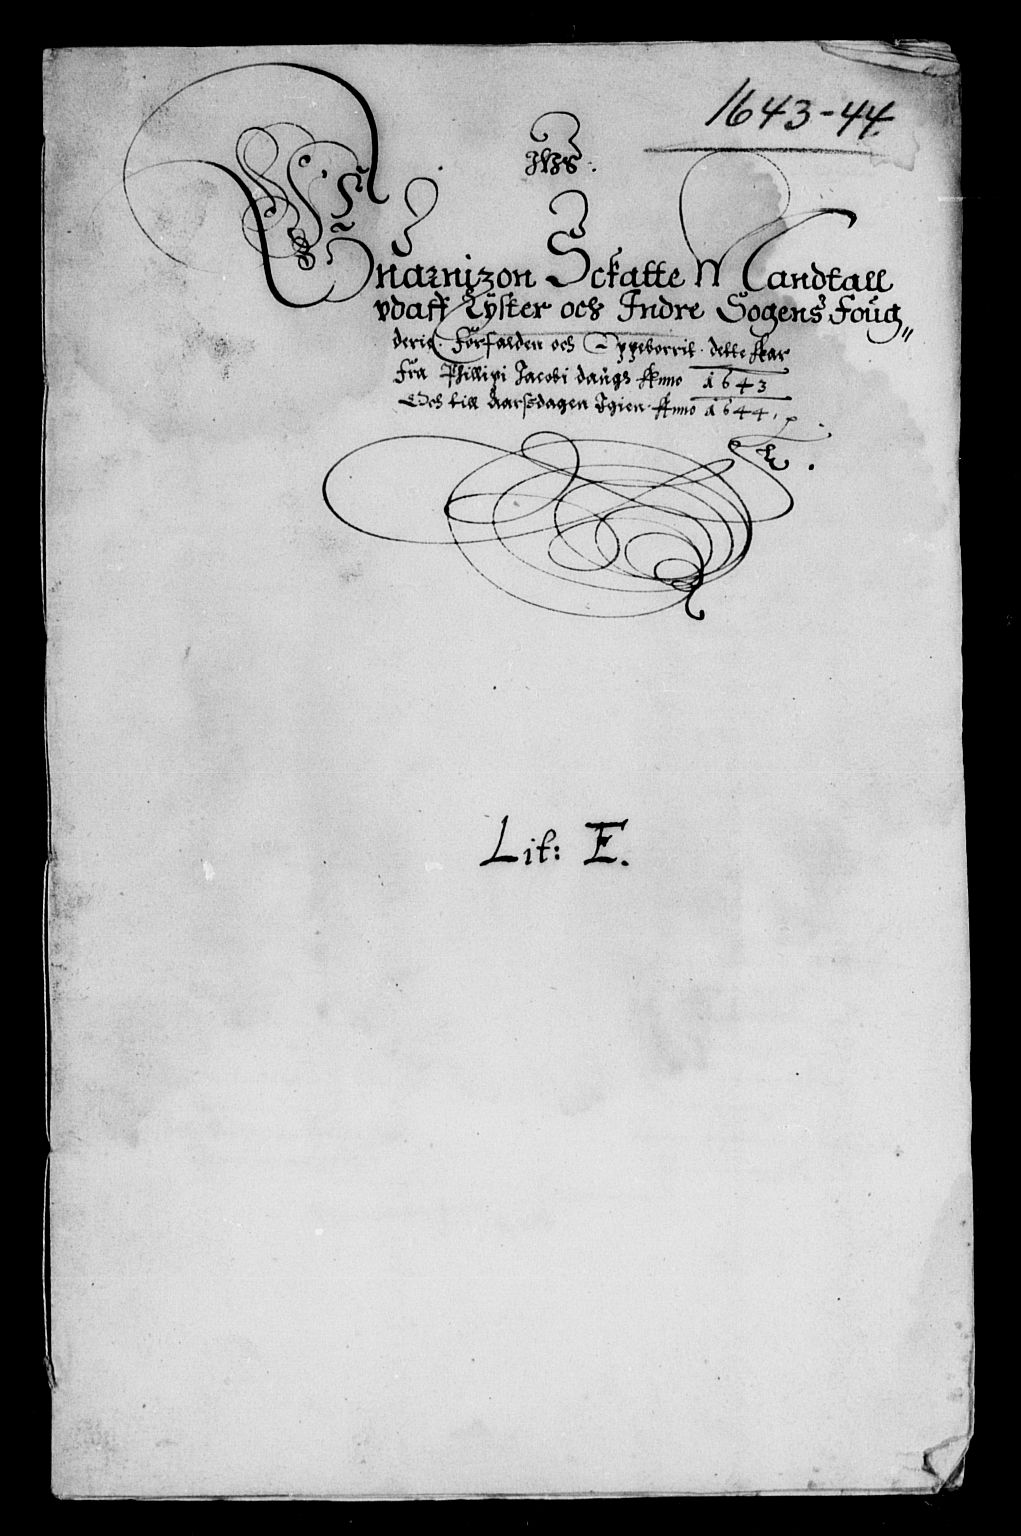 1643-44
IHS.
Guarnizon Sckatte Mandtall
vdaff Lyster och Indre Sogens Foug„
derie. Forfalden och Oppeborrit. dette Aar
Fra Phillipi Jacobi daugs Anno 1643
Och till Aarsdagen Igien. Anno 1644.
Lit: E.